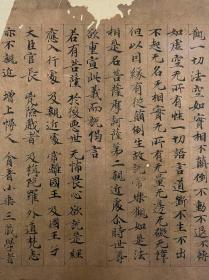 觀一切法空如實相不顛倒不動不退不轉
如虛空无所有性一切語言道斷不生不出
不起无名无相實无所有无量无邊无礙无障
但以因緣有從顛倒生故說常樂觀如是法
相是名菩薩摩訶薩第二親近處尒時世尊
欲重宣此義而說偈言
若有菩薩 於後惡世 无怖畏心 欲說是經
應入行處 及親近處 常離國王 及國王子
大臣官長 兇險戲者 及旃陀羅 外道梵志
亦不親近 增上慢人 貪著小乘 三藏學者